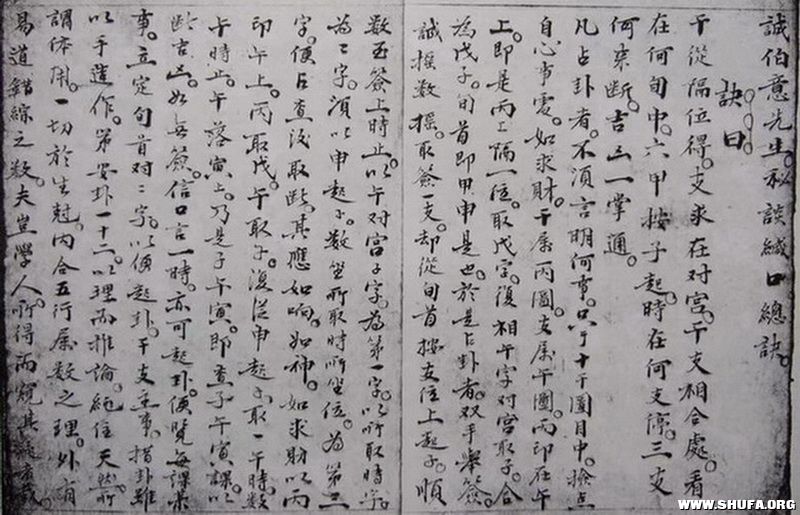 誠伯意先生秘談緘口總訣。
訣曰。
干從隔位得。支求在对宮。干支相合處。看
在何旬中。六甲按子起。時在何支停。三支
何柬断。吉凶一掌通。
凡占卦者。不須言明何事。只于十干圖目中。撿点
自心事處。如求財。干屬丙圖。支屬午圖。丙印在午
上。即是丙上隔一位。取戊字。復相午字对宮取子。合
為戊子。旬首即甲申是也。於是占卦者。双手舉簽。
誠摇数摇。取簽一支。却從旬首按支位上起子。順
数至簽上時止。以午对宮子字。為第一字。以所取時字。
為二字。須以申起子。数至所取時所坐位。為第三
字。便占查後取断。其應如响。如神。如求財以丙
印午上。丙取戊。午取子。復從申起子。取一午時。数
午時止。午落寅上。乃是子午寅。即查子午寅課。以
断吉凶。如無簽。信口言一時。亦可起卦。便覽每課
事。立定旬首对二字。以便起卦。干支主事。措卦雖
以手造作。第安卦一十二。以理而推論。純任天然。所
謂体用。一切於生尅。内合五行屬数之理。外有
易道錯綜之数。夫豈學人所得而窺其
WWW.SHUFA.ORG